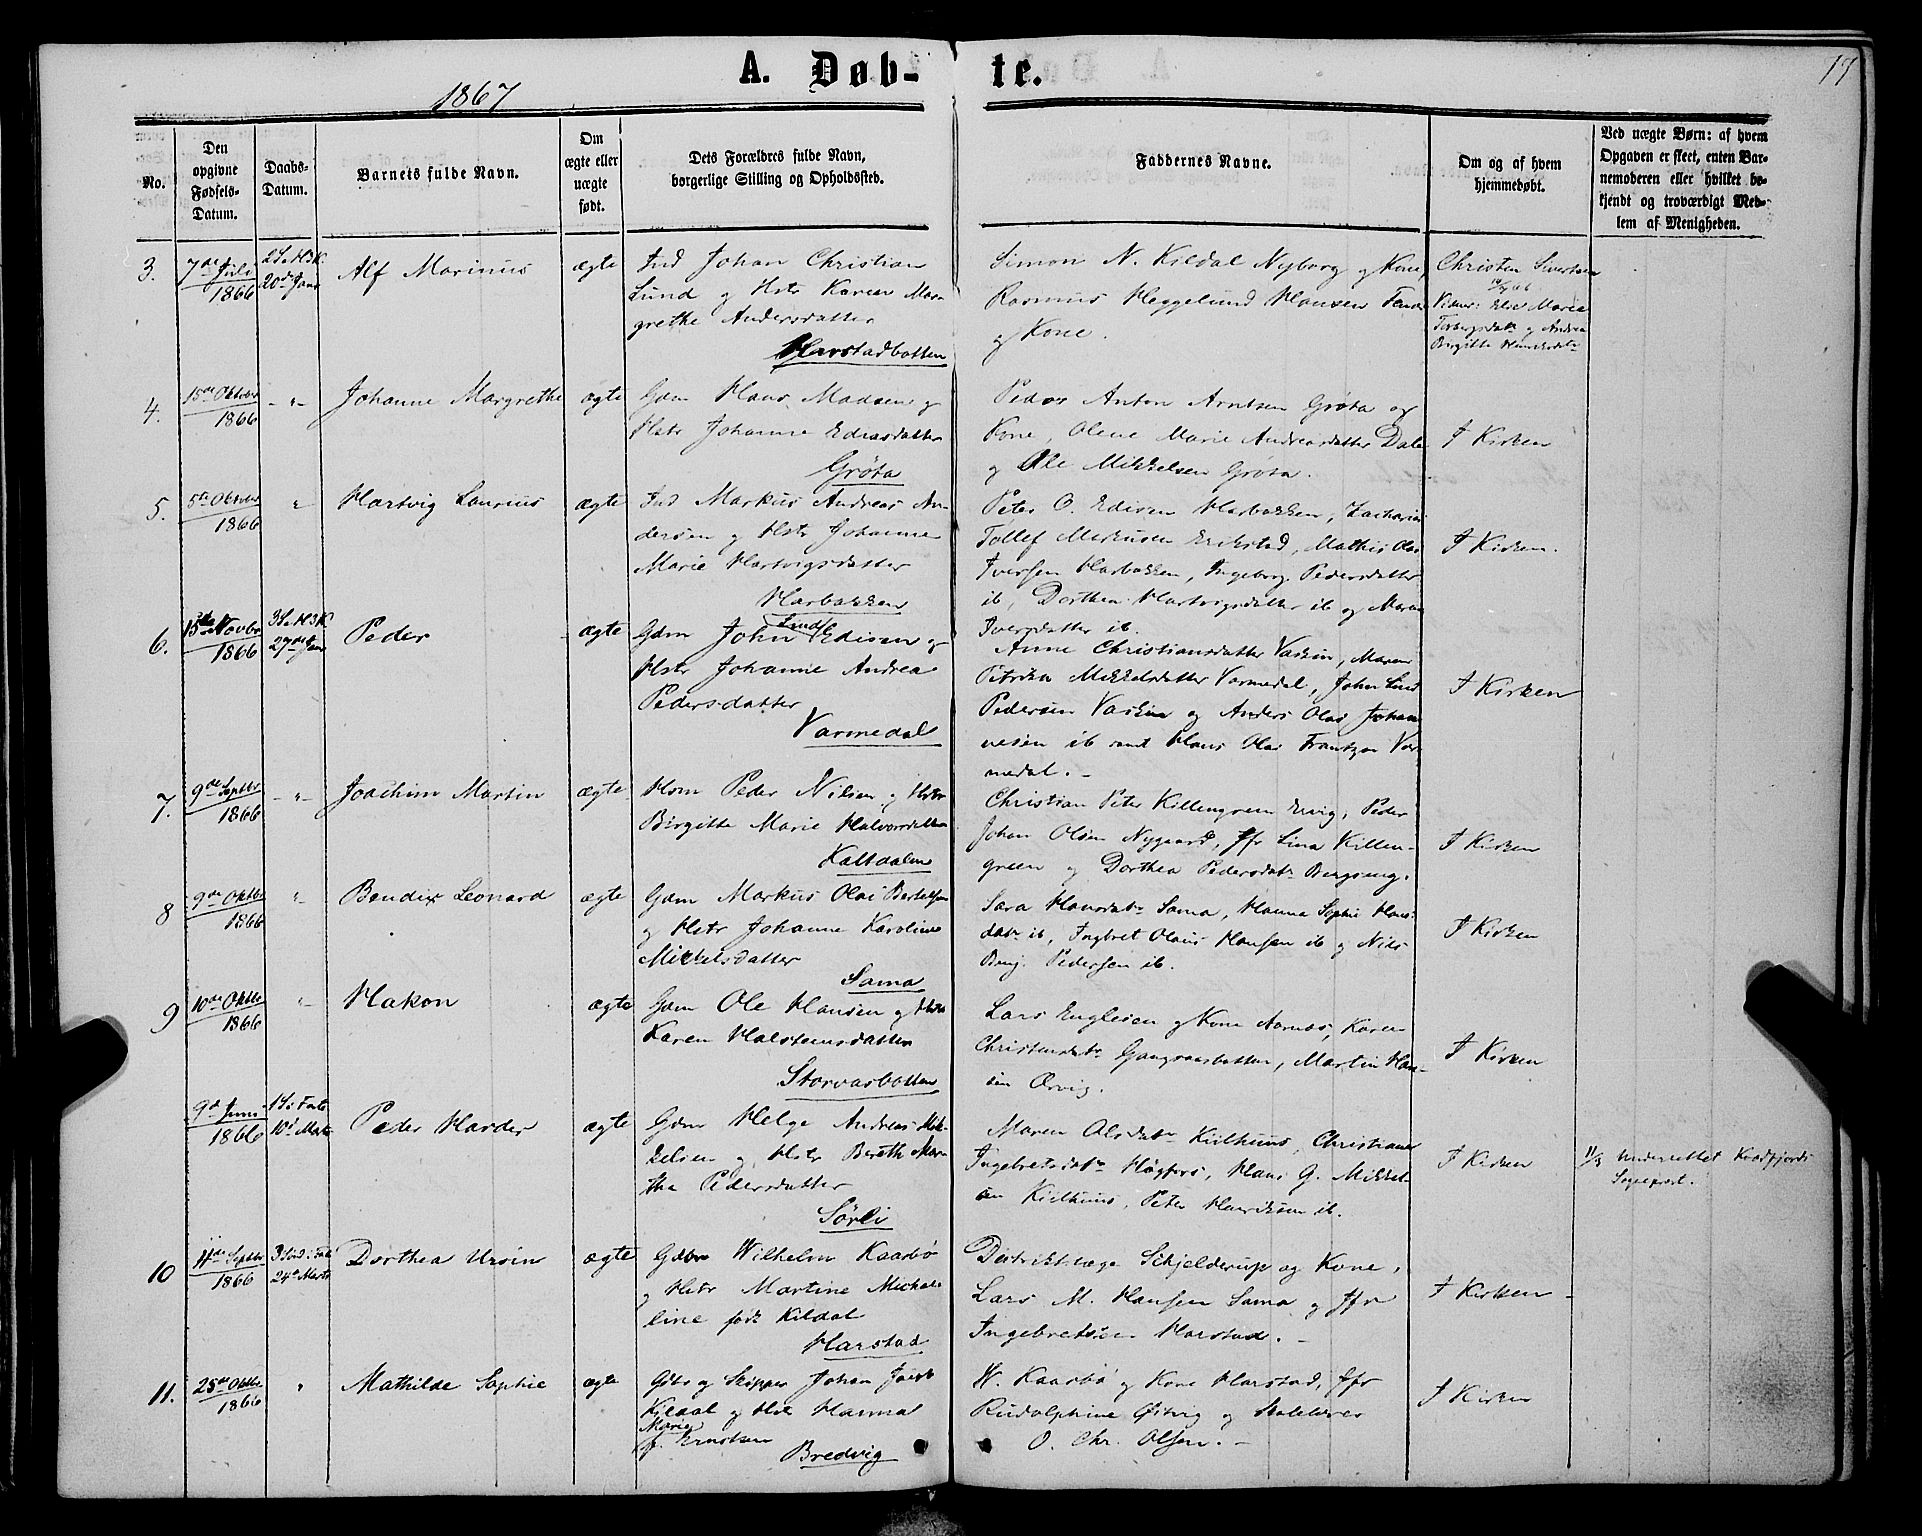 17
A. Døb-te.
1867
No.
Den opgivne Fødsels-Datum.
Daabs-Datum.
Barnets fulde Navn.
Om ægte eller uægte født.
Dets Forældres fulde Navn, borgerlige Stilling og Opholdssted.
Faddernes Navne.
Om og af hvem hjemmedøbt.
Ved uægte Børn: af hvem Opgaven er skeet, enten Barnemoderen eller hvilket bekjendt og troværdigt Medlem af Menigheden.
3.
7de Juli
1866
2 S. e. H3K.
20de Janr
Alf Marinus
ægte
Ind Johan Christian
Lund og Hstr Karen Mar-
grethe Andersdatter
Harstadbotten
Simon N. Kildal Nyborg og Kone,
Rasmus Heggelund Hansen
og Kone.
Christen Sivertsen
Vidner: Else Marie
og Andrea
Birgitte
4.
15de Oktobr
1866
- " -
Johanne Margrethe
ægte
Gdm Hans Madsen og
Hstr Johanne Edisdatter
Grøta
Peder Anton Arntsen Grøta og
Kone, Olene Marie Andreasdatter Dale
og Ole Mikkelsen Grøta.
I Kirken
5.
5te Oktobr
1866
"
Hartvig Laurius
ægte
Ind Markus Andreas An-
dersen og Hstr Johanne
Marie Hartvigsdatter
Harbakken
Peter O. Edisen Harbakken, Zacharias
Tollef Markusen Erikstad, Mathis Olai
Iversen Harbakken, Ingeborg Pedersdatter
ib, Dorthea Hartvigsdatter ib og Maren
Iversdatter ib.
I Kirken.
6.
15de Novbr
1866
3 S. e. H3K
27de Janr
Peder
ægte
Gdm John Lind Edisen og
Hstr Johanne Andrea
Pedersdatter
Varmedal
Anne Christiansdatter Vaskin, Maren
Petrikka Mikkelsdatter Varmedal, John Lind
Pedersen Vaskin og Anders Olai Johan-
nesen ib samt Hans Olai Frantzen Var-
medal. -
I Kirken
7.
9de Septbr
1866
- " -
Joachim Martin
ægte
Hsm Peder Nilsen og Hstr
Birgitte Marie Halvorsdatter
Kaltdalen
Christian Peter Killengreen Ervig, Peder
Johan Olsen Nygaard, Jfr Lina Killen-
green og Dorthea Pedersdatr Bergseng.
I Kirken
8
9de Oktbr
1866
"
Bendix Leonard
ægte
Gdm Markus Olai Bertelsen
og Hstr Johanne Karoline
Mikkelsdatter
Sama
Sara Hansdatr Sama, Hanna Sophie Hans-
datr ib, Ingbret Olaus Hansen ib og Nils
Benj. Pedersen ib.
I Kirken
9
10de Oktbr
1866
"
Hakon
ægte
Gdm Ole Hansen og Hstr
Karen Halsteinsdatter
Storvasbotten
Lars Englesen og Kone Aarnæs, Karen
Christensdatr Gangsaasbotten, Martin Han-
sen Ørvig.
I Kirken
9de Juni
1866
1 S. i Faste
10de Marts
Peder Harder
ægte
Gdm Helge Andreas Mik-
kelsen og Hstr Bereth Mar-
tha Pedersdatter
Sørli
Maren Olsdatr Kielhuus, Christiane
Ingebretsdatr Høgfors, Hans G. Mikkel-
sen Kielhuus, Peter Henriksen ib.
I Kirken
11/3 Underrettet Kvædfjords
Sognepræst.
10
4de Septbr
1866
3 Sønd. i Faste
24de Marts
Dorthea Ursin
ægte
Gdbr Wilhelm Kaarbø
og Hstr Martine Micha-
line født Kildal
Harstad
Distriktslæge Schjelderup og Kone,
Lars M. Hansen Sama og Jfr
Ingebretsen Harstad. -
I Kirken -
11.
25de Oktbr
1866
"
Mathilde Sophie
ægte
Gbr og Skipper Johan
Kildal og Hst Hanna
Marie
f. Ernstsen
Bredvig
W. Kaarbø og Kone Harstad, Jfr
Rudolphine Østvig og Skolelærer
O. Chr. Olsen. -
I Kirken